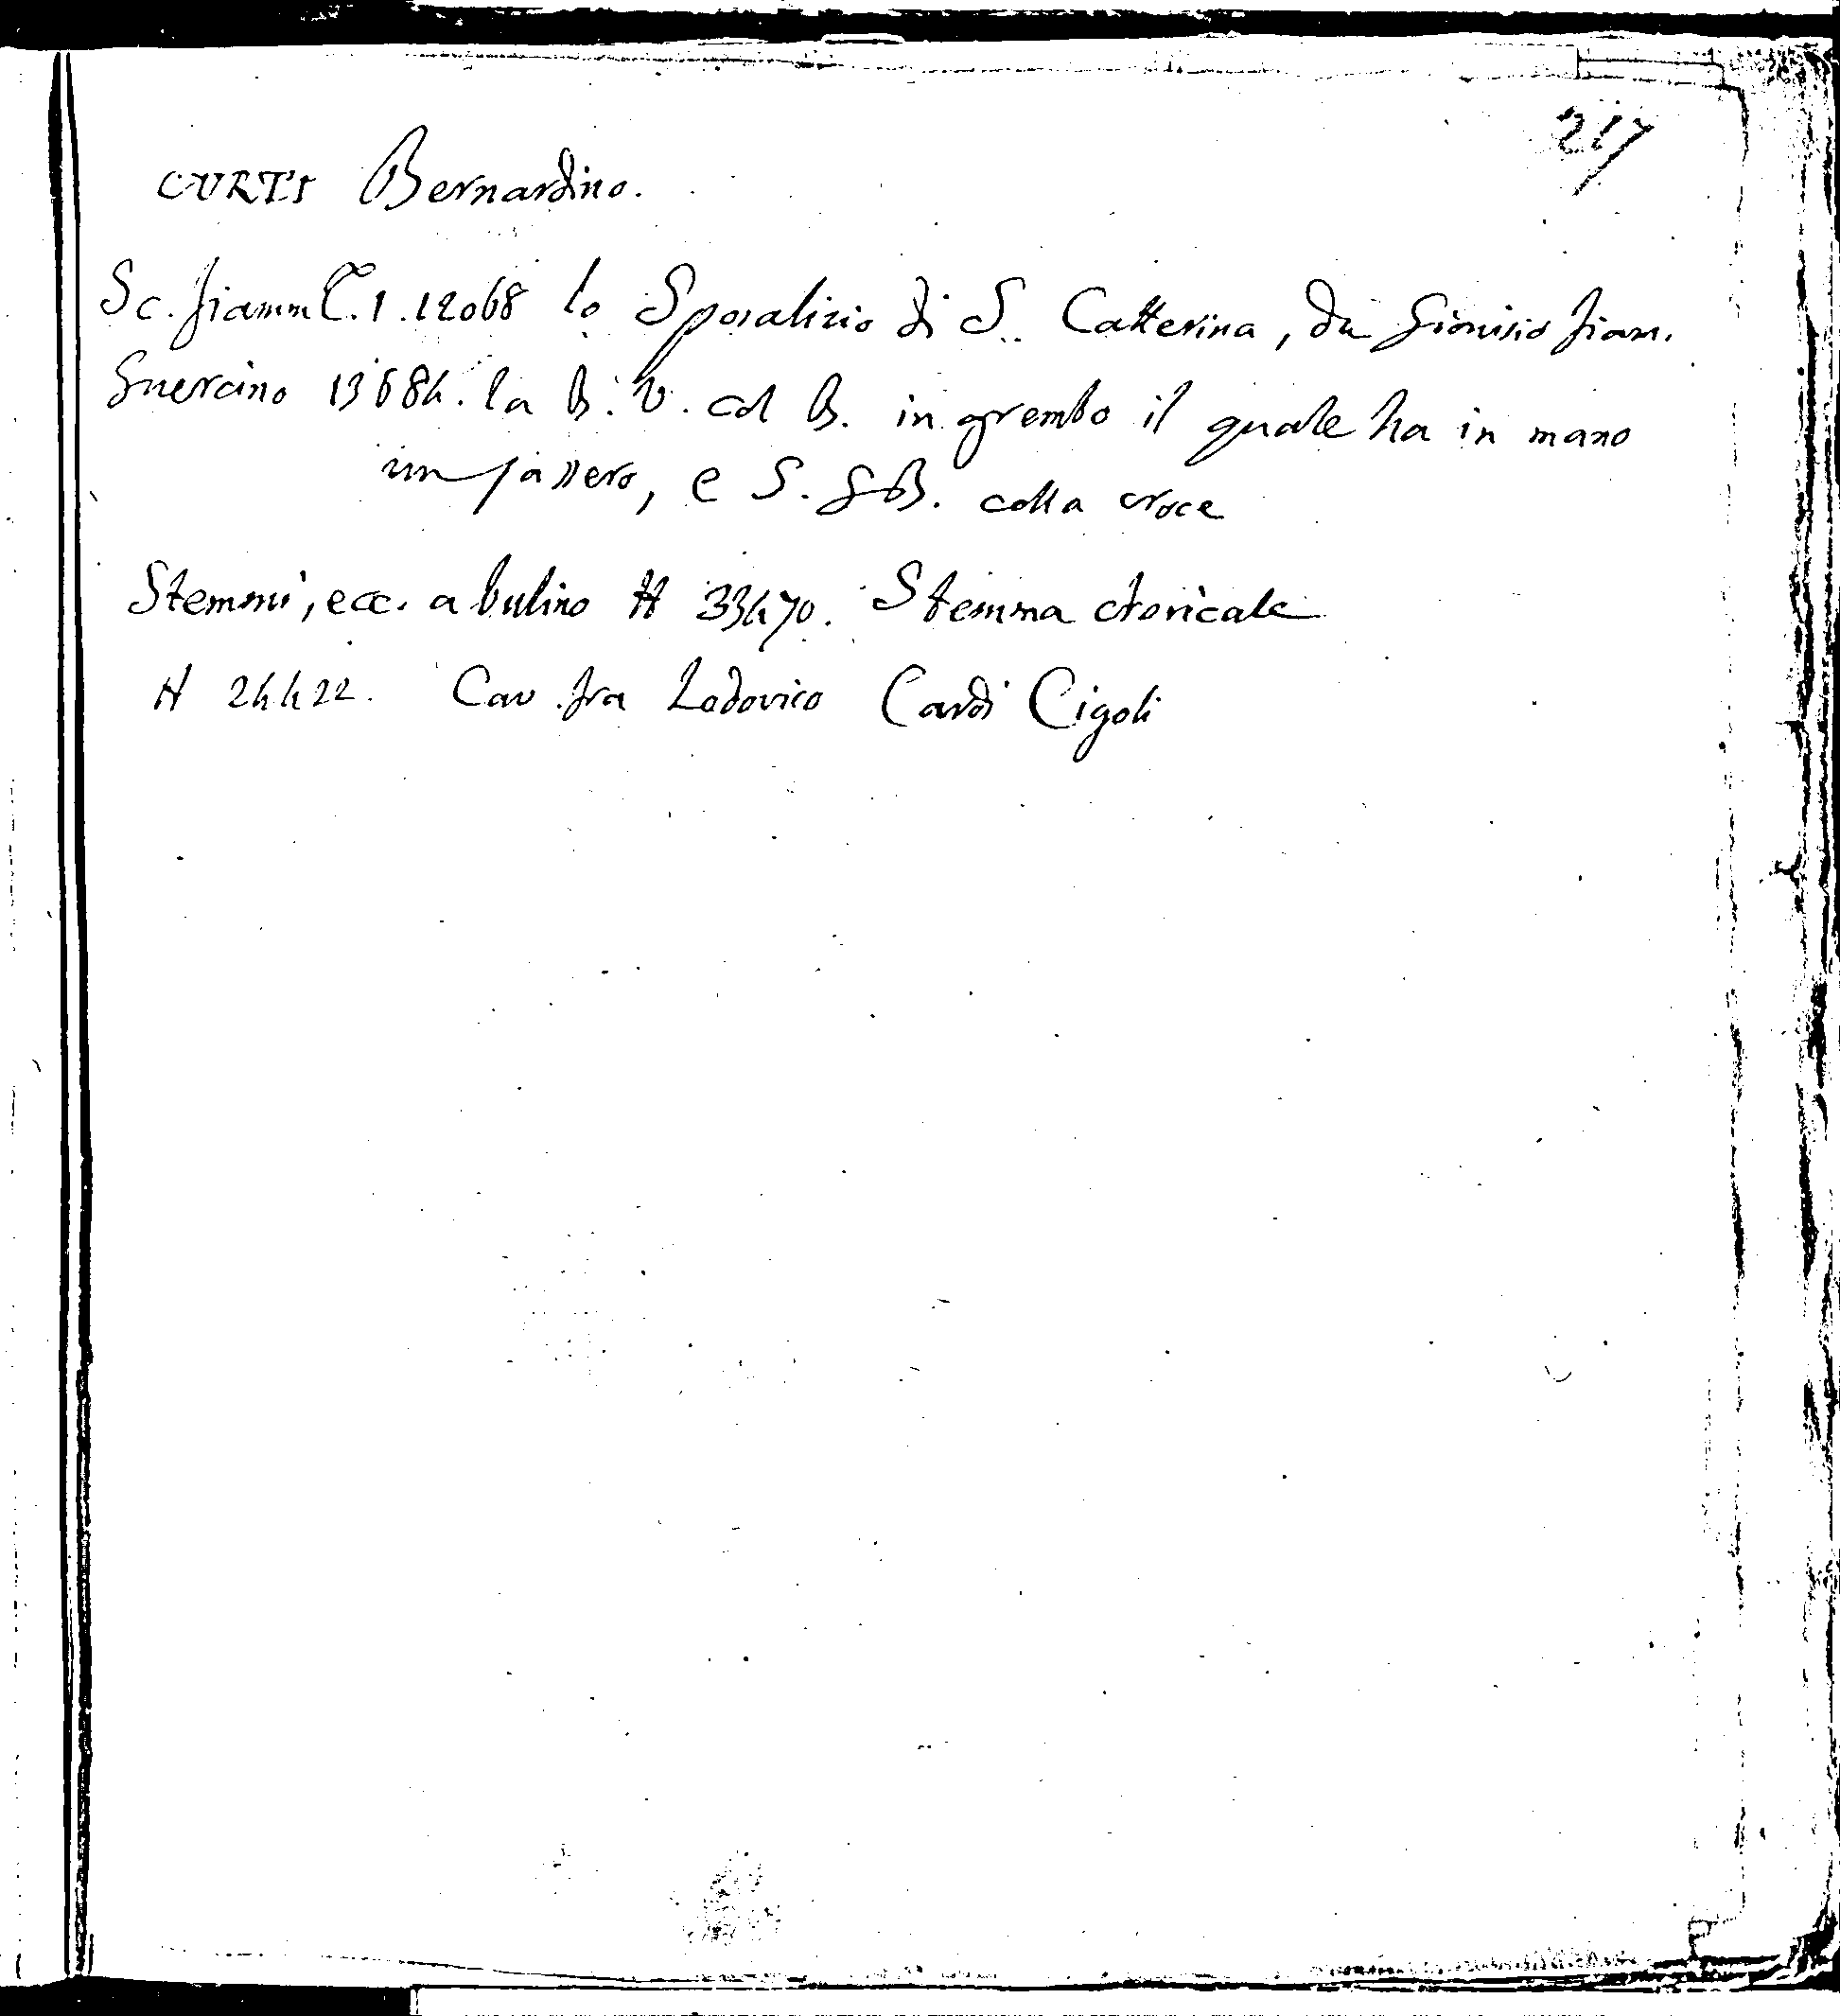 217
CURTI Bernardino.
Sc. fiamm T. 1. 12068 lo Sposalizio di S. Catterina, da Dionisio fiam.
Guercino 13684. la B. V. col B. in grembo il quale ha in mano
un passero, e S. GB. colla croce
Stemmi, ecc. a bulino H 33470. Stemma clericale
H 24422. Cav. fra Lodovico Cardi Cigoli